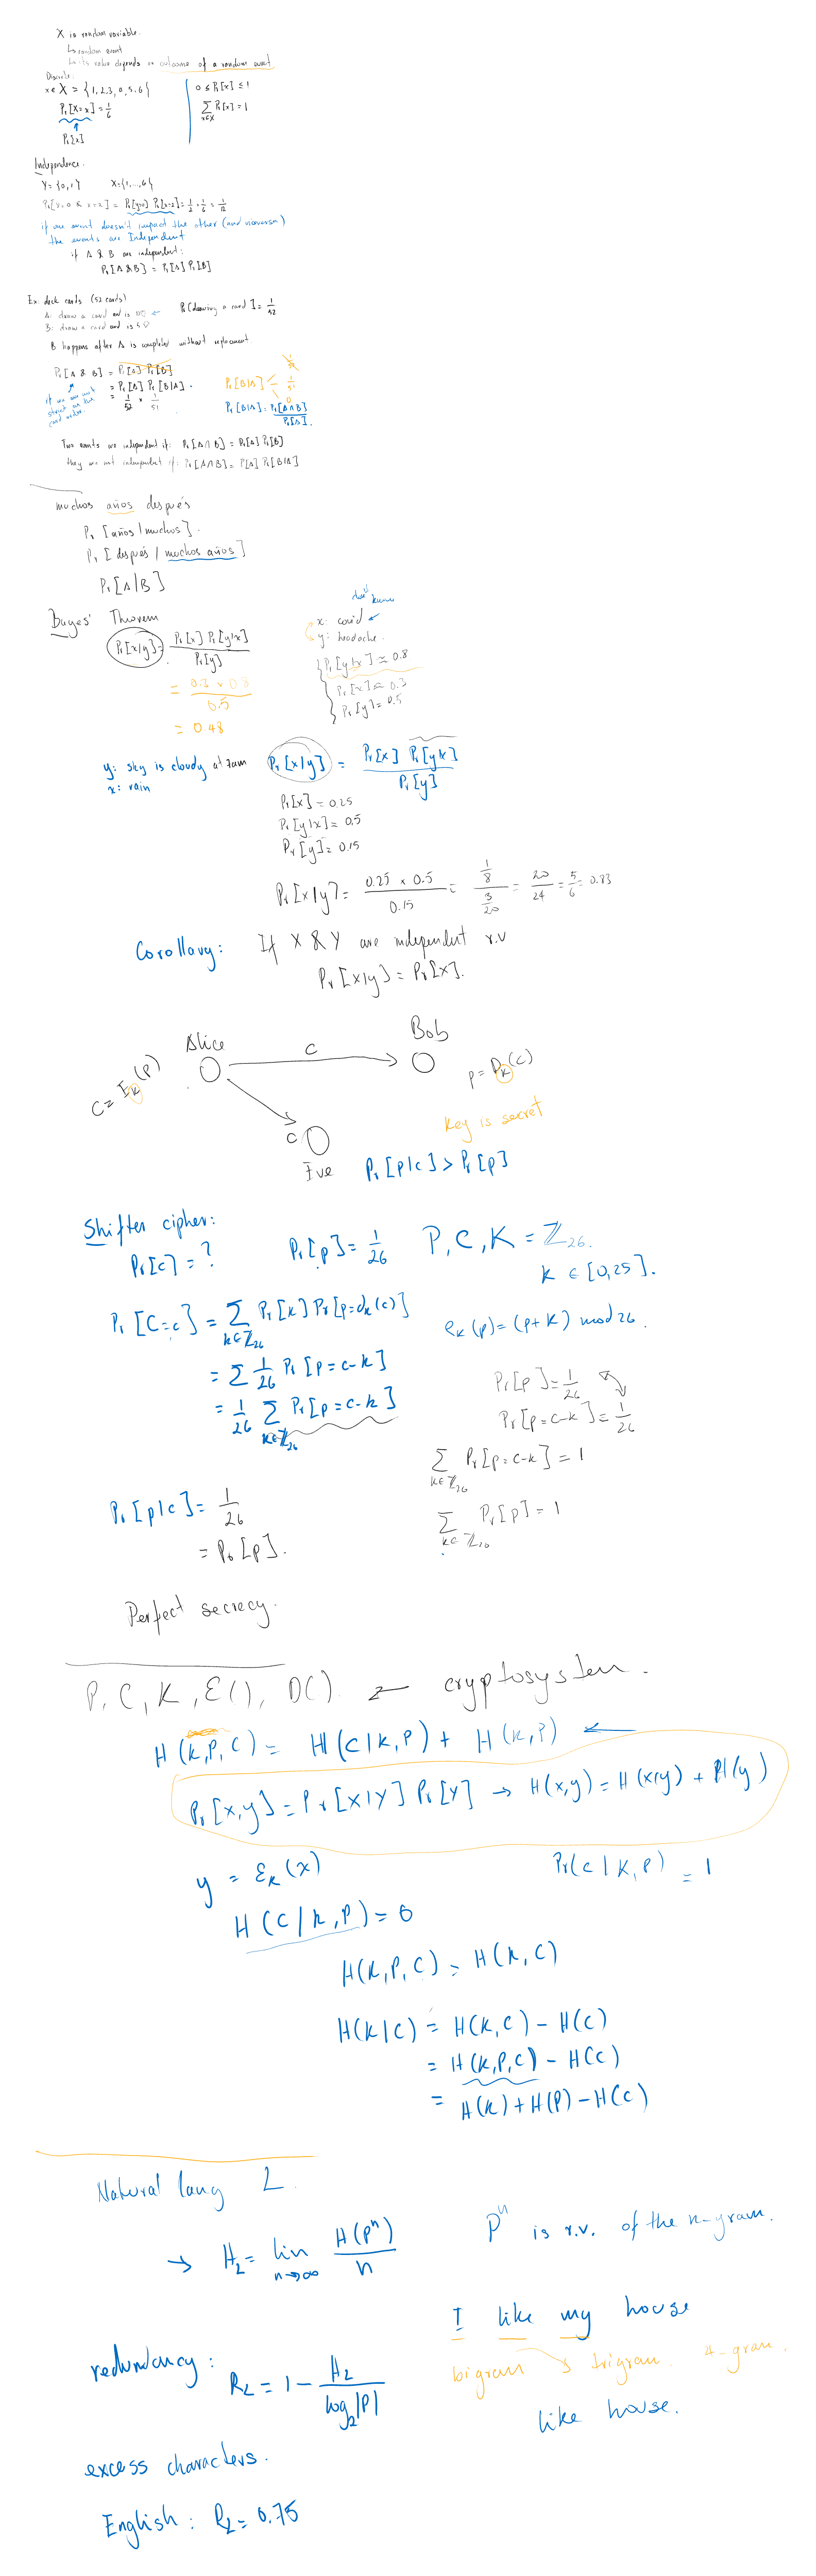 X is random variable.
↳ random event
↳ its value depends on outcome of a random event
Discrete:
x ∈ X = {1, 2, 3, 4, 5, 6}
Pr[X=x] = 1/6
Pr[x]
0 ≤ Pr[x] ≤ 1
∑_{x∈X} Pr[x] = 1
Independence.
Y = {0,1} X = {1,...,6}
Pr[y=0 & x=2] = Pr[y=0] Pr[x=2] = 1/2 · 1/6 = 1/12
if one event doesn't impact the other (and viceversa)
the events are Independent
if A & B are independent:
Pr[A & B] = Pr[A] Pr[B]
Ex: deck cards (52 cards)
A: draw a card and is
B: draw a card and is
Pr[drawing a card] = 1/52
B happens after A is completed without replacement.
Pr[A & B] = Pr[A] Pr[B]
= Pr[A] Pr[B|A].
= 1/52 · 1/51
if we are not
strict on the
card order.
Pr[B|A] = 1/51
0
Pr[B|A] = Pr[A∩B] / Pr[A].
Two events are independent if: Pr[A∩B] = Pr[A] Pr[B]
they are not independent if: Pr[A∩B] = P[A] Pr[B|A]
muchos años después
Pr [años | muchos].
Pr [después | muchos años]
Pr [A|B]
Bayes' Theorem
Pr[x|y] = Pr[x] Pr[y|x] / Pr[y]
= 0.3 × 0.8 / 0.5
= 0.48
don't know
x: covid
y: headache.
Pr[y|x] ≈ 0.8
Pr[x] ≈ 0.3
Pr[y] = 0.5
y: sky is cloudy at 7am
x: rain
Pr[x|y] = Pr[x] Pr[y|x] / Pr[y]
Pr[x] = 0.25
Pr[y|x] = 0.5
Pr[y] = 0.15
Pr[x|y] = 0.25 × 0.5 / 0.15 = 1/8 / 3/20 = 20/24 = 5/6 = 0.83
Corollary: If X & Y are independent r.v
Pr[x|y] = Pr[x].
Alice
Bob
C = E_k(p)
c
p = D_k(c)
key is secret
c
Eve
Pr[p|c] > Pr[p]
Shifter cipher:
Pr[c] = ?
Pr[p] = 1/26
P, C, K = ℤ_26.
k ∈ [0,25].
Pr[C=c] = ∑_{k∈ℤ_26} Pr[k] Pr[p=d_k(c)]
e_k(p) = (p+k) mod 26.
= ∑ 1/26 Pr[p=c-k]
= 1/26 ∑_{k∈ℤ_26} Pr[p=c-k]
Pr[p] = 1/26
Pr[p=c-k] = 1/26
∑_{k∈ℤ_26} Pr[p=c-k] = 1
∑_{k∈ℤ_26} Pr[p] = 1
Pr[p|c] = 1/26
= Pr[p].
Perfect secrecy.
P, C, K, E(), D() ← cryptosystem.
H(K,P,C) = H(C|K,P) + H(K,P) ←
Pr[x,y] = Pr[x|y] Pr[y] → H(x,y) = H(x|y) + H(y)
y = E_k(x)
Pr(C|K,P) = 1
H(C|K,P) = 0
H(K,P,C) = H(K,C)
H(K|C) = H(K,C) - H(C)
= H(K,P,C) - H(C)
= H(K) + H(P) - H(C)
Natural lang L.
→ H_L = lim_{n→∞} H(P^n) / n
P^n is r.v. of the n-gram.
redundancy:
R_L = 1 - H_L / log_2|P|
I like my house
bigram trigram. 4-gram.
like house.
excess characters.
English: R_L = 0.75